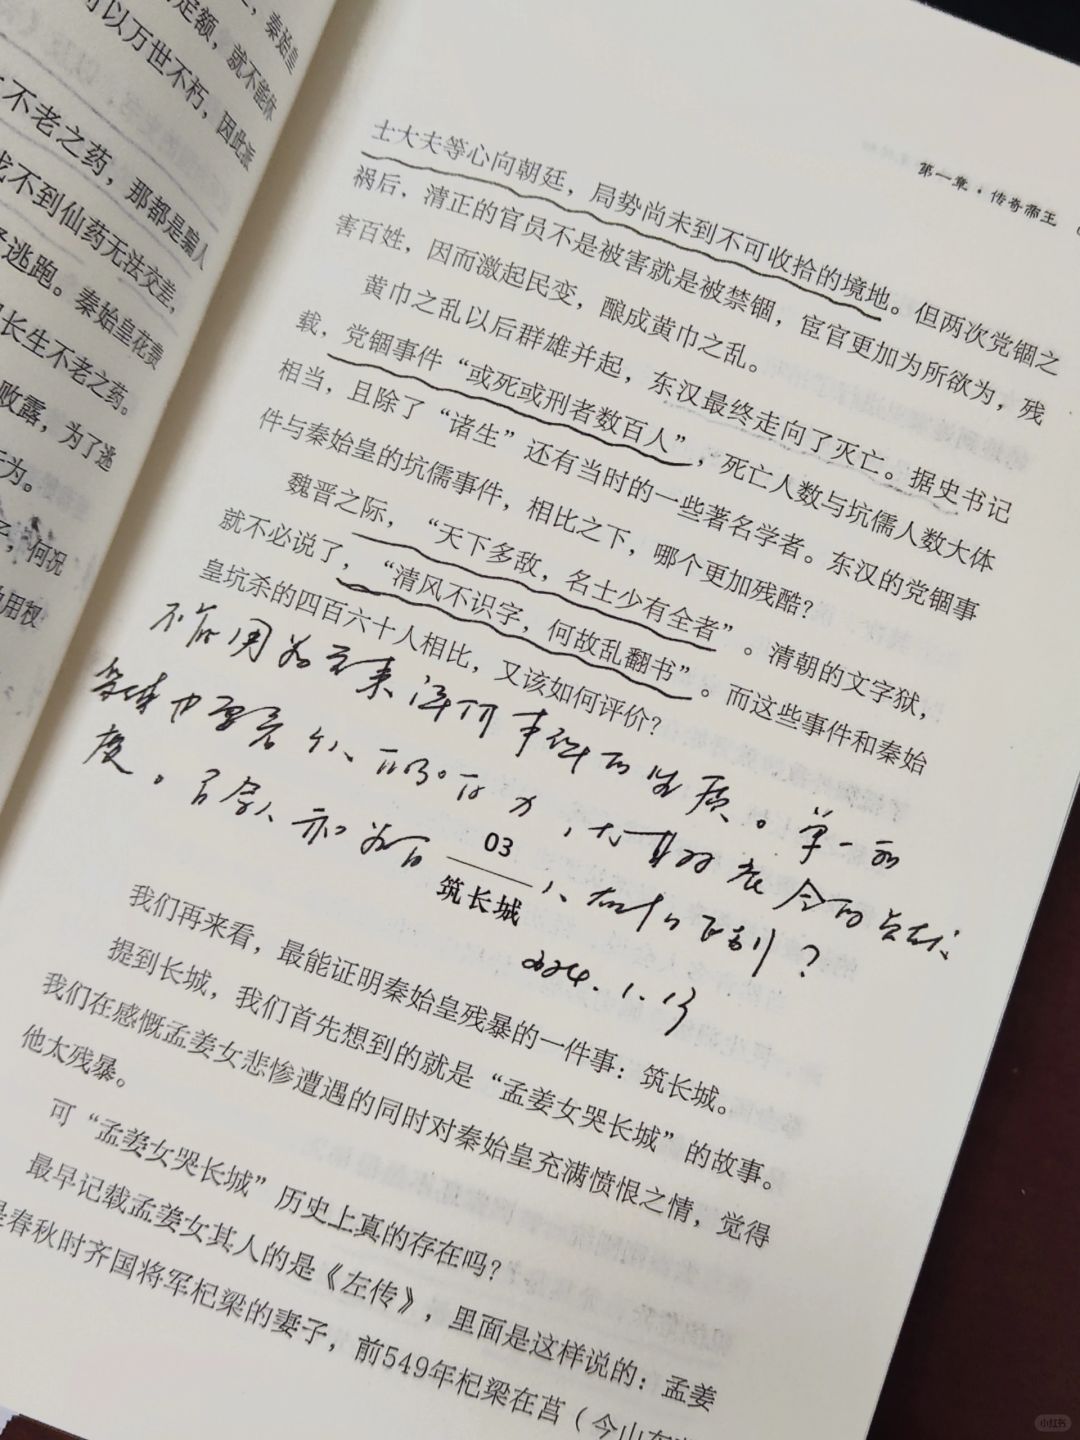 ，秦始皇
定额，就不能休
可以万世不朽，因此派
不老之药，那都是骗人
找不到仙药无法交差，
逃跑。秦始皇花费
长生不老之药。
败露，为了逃
为。
，何况
用权
第一章·传奇帝王
士大夫等心向朝廷，局势尚未到不可收拾的境地。但两次党锢之
祸后，清正的官员不是被害就是被禁锢，宦官更加为所欲为，残
害百姓，因而激起民变，酿成黄巾之乱。
黄巾之乱以后群雄并起，东汉最终走向了灭亡。据史书记
载，党锢事件“或死或刑者数百人”，死亡人数与坑儒人数大体
相当，且除了“诸生”还有当时的一些著名学者。东汉的党锢事
件与秦始皇的坑儒事件，相比之下，哪个更加残酷？
魏晋之际，“天下多敌，名士少有全者”。清朝的文字狱，
就不必说了，“清风不识字，何故乱翻书”。而这些事件和秦始
皇坑杀的四百六十人相比，又该如何评价？
不能用数量来评价事件的性质。单一
度。
2024.1.13
03
筑长城
我们再来看，最能证明秦始皇残暴的一件事：筑长城。
提到长城，我们首先想到的就是“孟姜女哭长城”的故事。
我们在感慨孟姜女悲惨遭遇的同时对秦始皇充满愤恨之情，觉得
他太残暴。
可“孟姜女哭长城”历史上真的存在吗？
最早记载孟姜女其人的是《左传》，里面是这样说的：孟姜
是春秋时齐国将军杞梁的妻子，前549年杞梁在莒（今山东
小红书